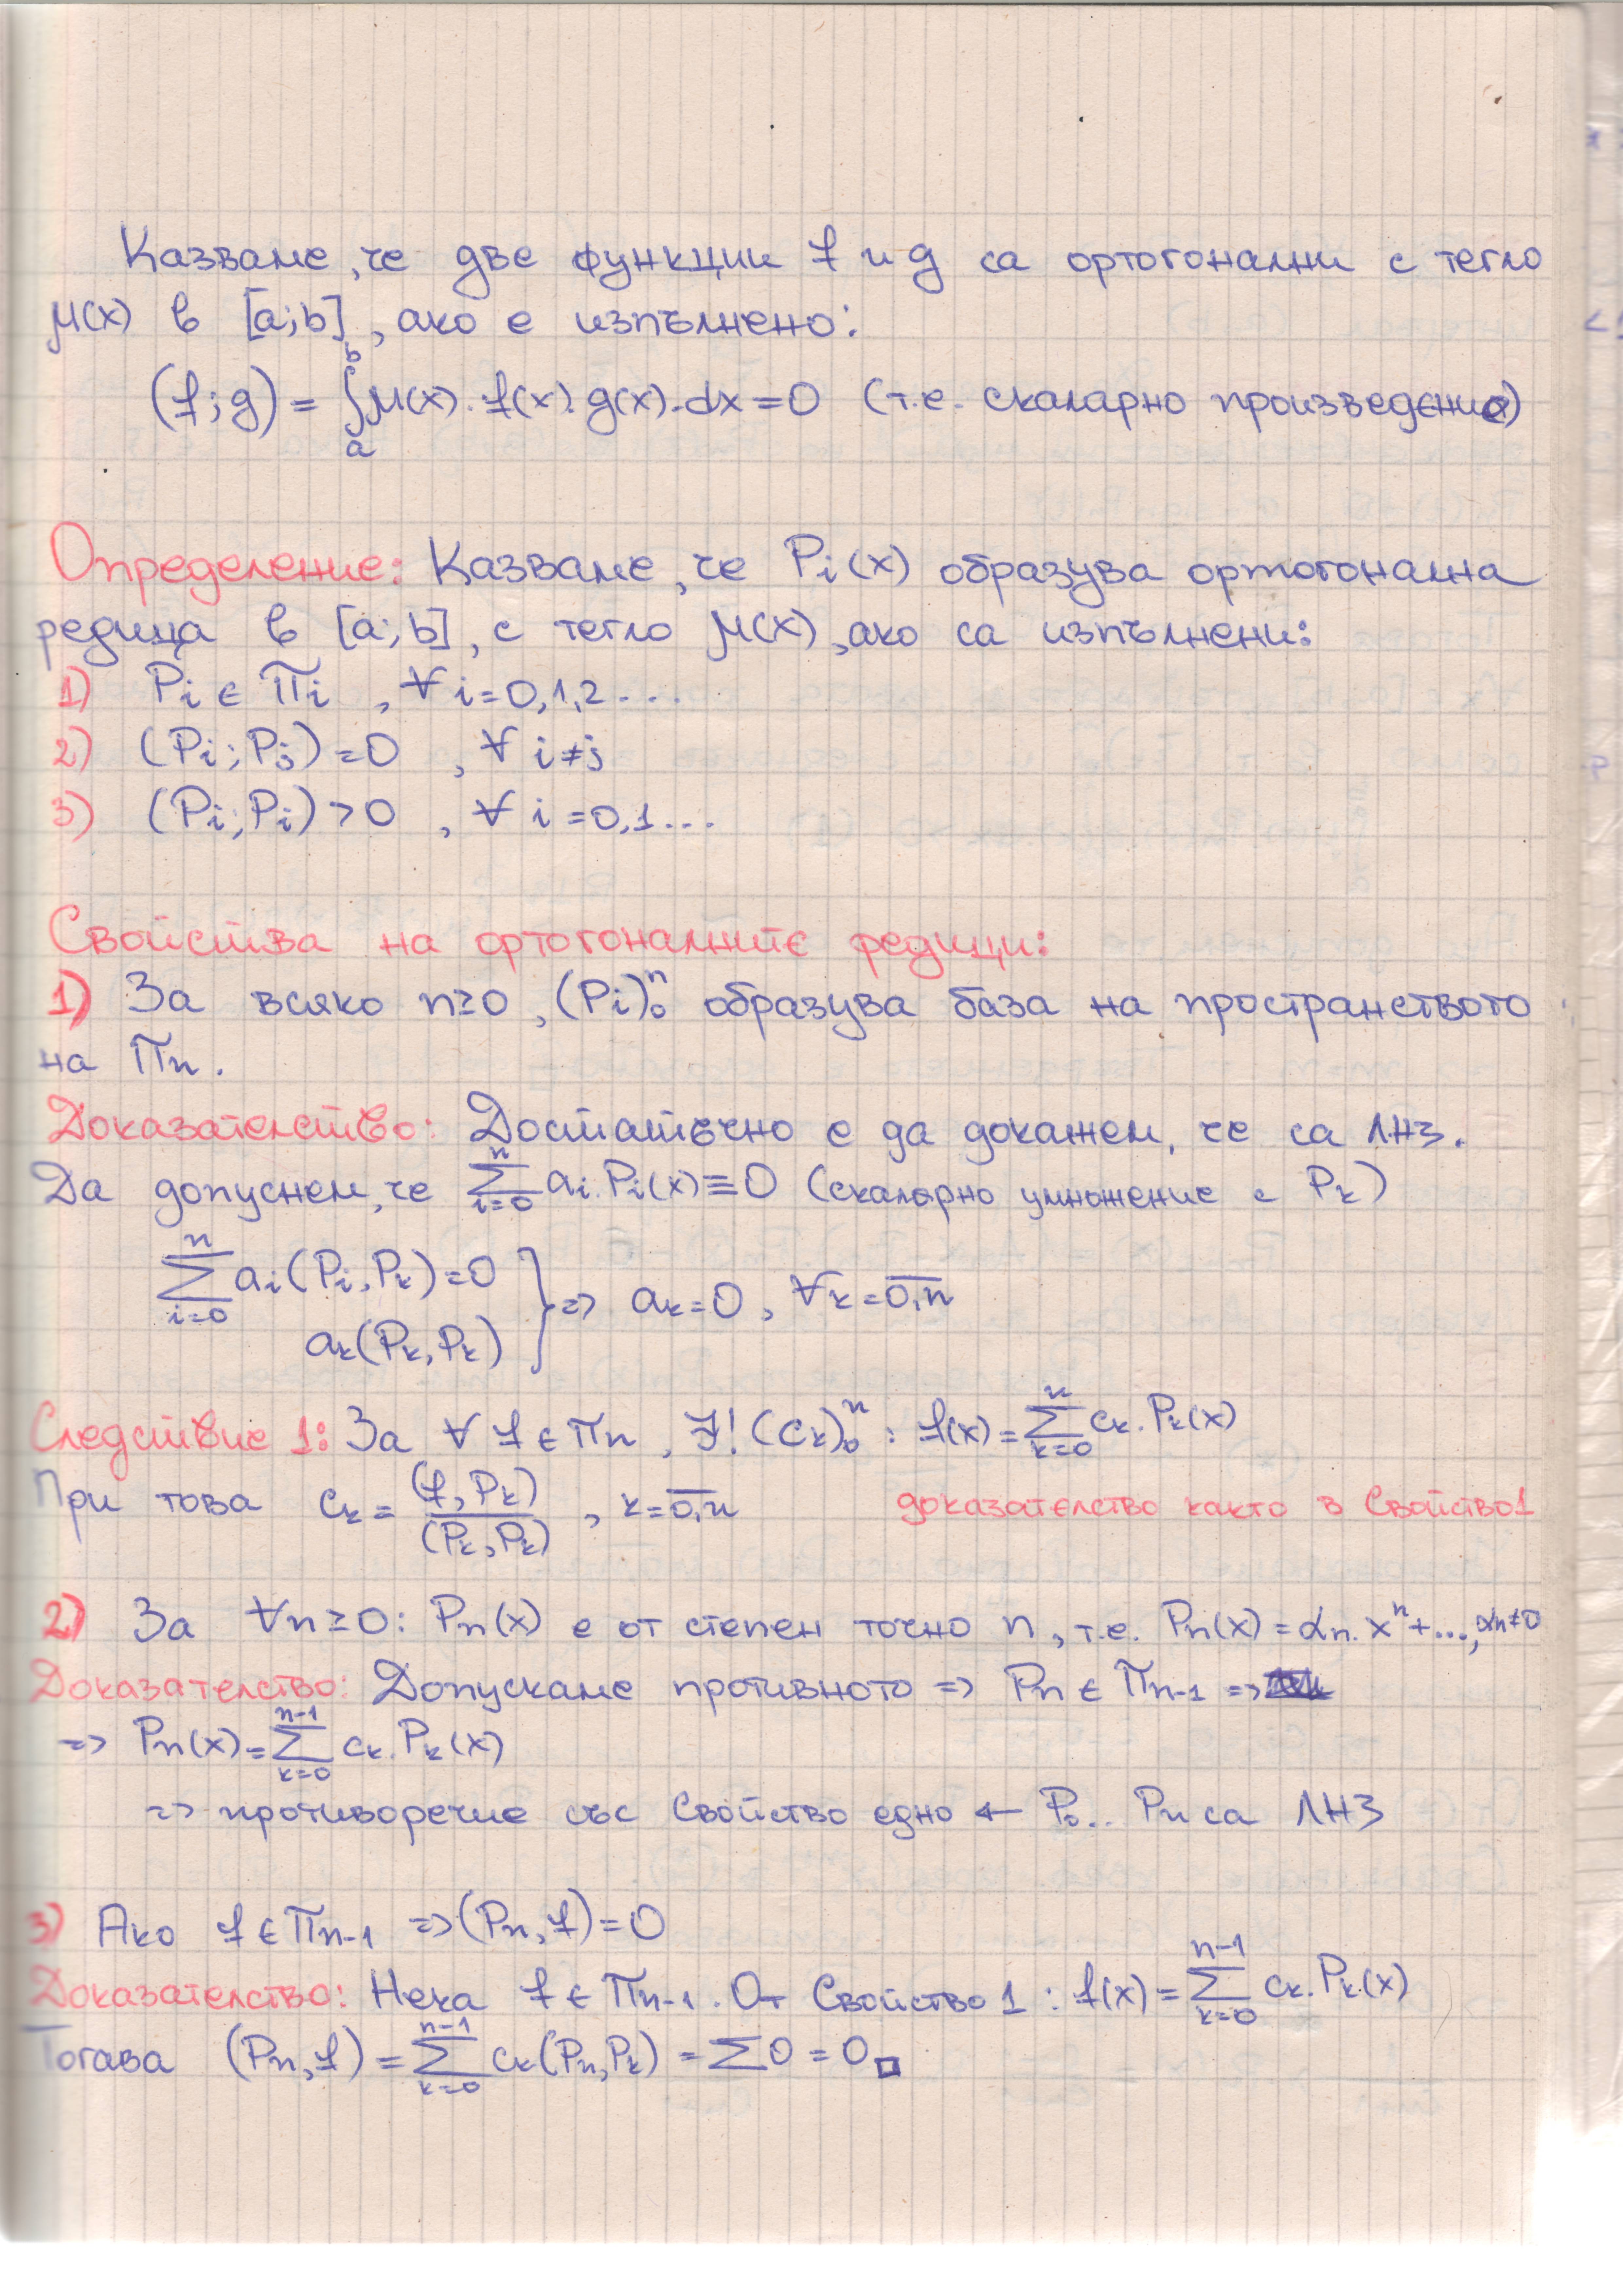 Казваме, че две функции f и g са ортогонални с тегло
μ(x) в [a;b], ако е изпълнено:
(f;g) = ∫_a^b μ(x).f(x).g(x).dx = 0 (т.е. скаларно произведение)
Определение: Казваме, че P_i(x) образува ортогонална
редица в [a;b], с тегло μ(x), ако са изпълнени:
1) P_i ∈ Π_i , ∀ i=0,1,2...
2) (P_i;P_j)=0 , ∀ i≠j
3) (P_i;P_i)>0 , ∀ i=0,1...
Свойства на ортогоналните редици:
1) За всяко n≥0, (P_i)_0^n образува база на пространството
на Π_n.
Доказателство: Достатъчно е да докажем, че са ЛНЗ.
Да допуснем, че ∑_{i=0}^n a_i.P_i(x)≡0 (скаларно умножение с P_k)
∑_{i=0}^n a_i(P_i,P_k)=0
a_k(P_k,P_k) } => a_k=0, ∀k=0,n
Следствие 1: За ∀ f ∈ Π_n, ∃! (c_k)_0^n : f(x)=∑_{k=0}^n c_k.P_k(x)
При това c_k = (f,P_k)/(P_k,P_k) , k=0,n доказателство както в Свойство1
2) За ∀n≥0: P_n(x) е от степен точно n, т.е. P_n(x)=α_n.x^n+..., α_n≠0
Доказателство: Допускаме противното => P_n ∈ Π_{n-1} =>
=> P_n(x)=∑_{k=0}^{n-1} c_k.P_k(x)
=> противоречие със Свойство едно ← P_0.. P_n са ЛНЗ
3) Ако f ∈ Π_{n-1} => (P_n,f)=0
Доказателство: Нека f ∈ Π_{n-1}. От Свойство 1 : f(x)=∑_{k=0}^{n-1} c_k.P_k.(x)
Тогава (P_n,f)=∑_{k=0}^{n-1} c_k(P_n,P_k) = ∑0 = 0 □